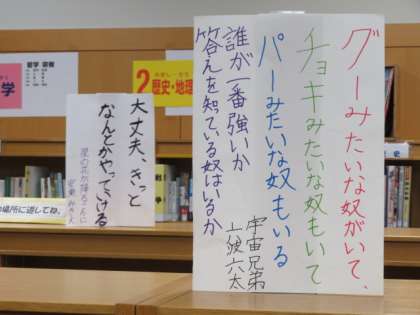 グーみたいな奴がいて、
チョキみたいな奴もいて
パーみたいな奴もいる
誰が一番強いか
答えを知っている奴はいるか
宇宙兄弟
六太
大丈夫、きっと
なんとかやってける
2
歴史・地理
学
場所に返してね。